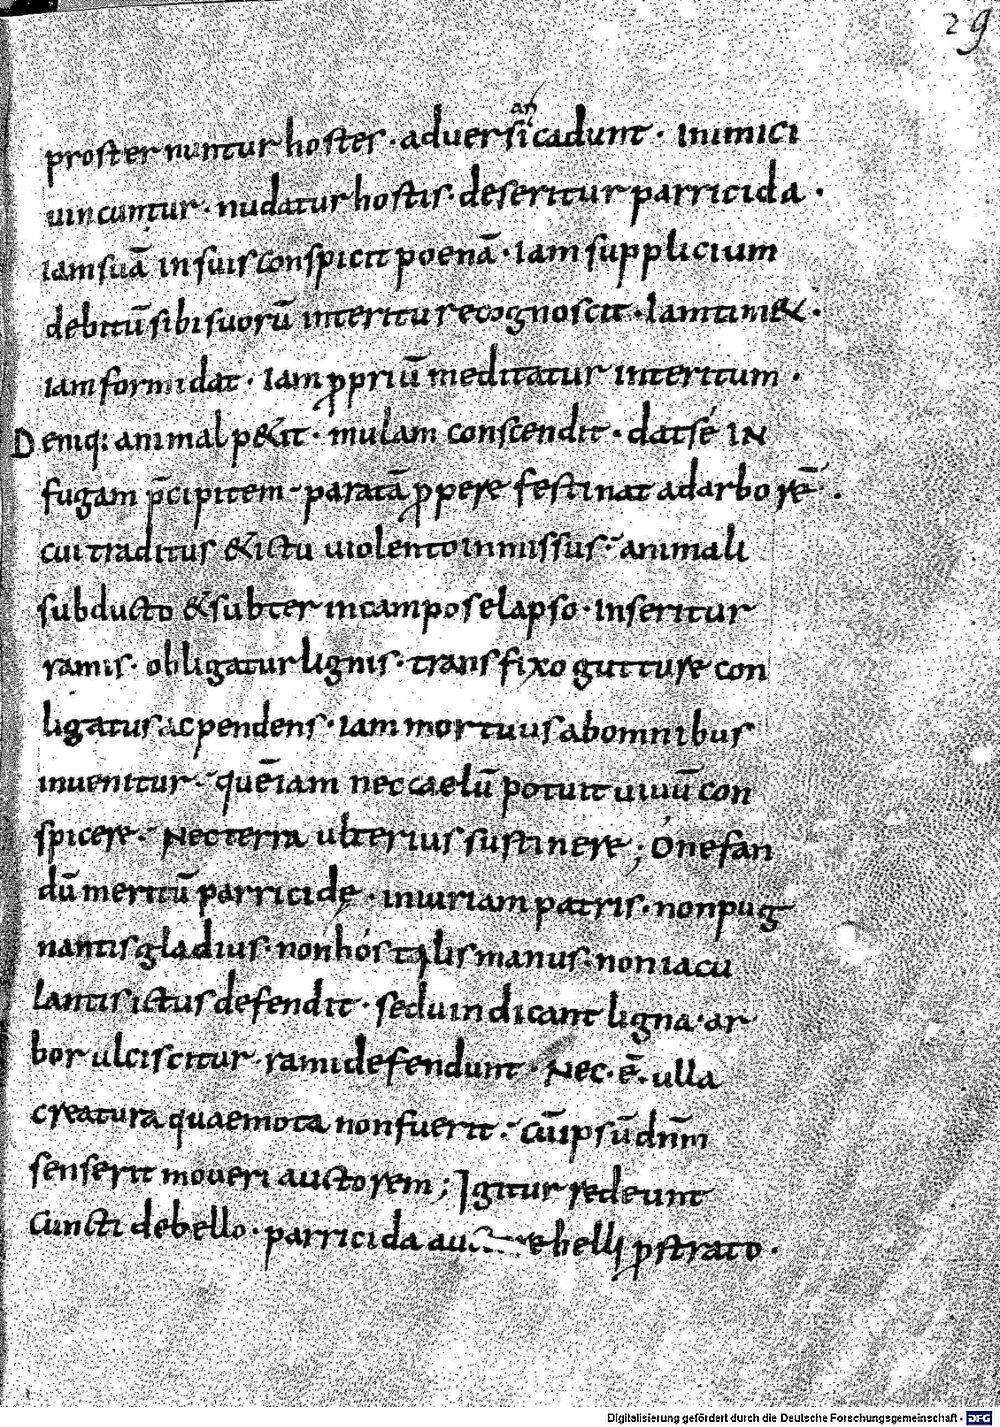 29
prosternuntur hostes · aduersarii cadunt · inimici
uincuntur · nudatur hostis · deseritur parricida ·
iam suā in suis conspicit poenā · iam supplicium
debitū sibi suorū interitu recognoscit · Iam timet ·
iam formidat · Iam ꝓpriū meditatur interitum ·
Deniq: animal petit · mulam conscendit · dat sé IN
fugam p̄cipitem · paratā ꝓpere festinat ad arborē ·
cui traditus & ictu uiolento inmissus · animali
subducto & subter in campos elapso · Inseritur
ramis · obligatur lignis · transfixo gutture con
ligatus ac pendens · iam mortuus ab omnibus
inuenitur · quē iam nec caelū potuit uiuū con
spicere · Nec terra ulterius sustinere ; O nefan
dū meritū parricidę · iniuriam patris · non pug
nantis gladius · non hostilis manus · non iacu
lantis ictus defendit · sed uindicant ligna · ar
bor ulciscitur · rami defendunt · Nec · ē · ulla
creatura quae mota non fuerit · Cū ipsū dnm̄
senserit moueri auctorem ; Igitur redeunt
cuncti de bello · parricida belli ꝓstrato ·
Digitalisierung gefördert durch die Deutsche Forschungsgemeinschaft · DFG